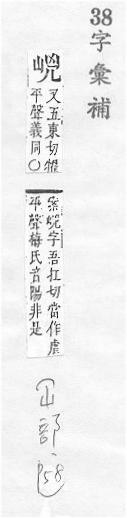 38字彙補
㟫
又五東切㹞
平聲義同〇
案㟫字吾扛切當作虛
平聲梅氏音陽非是
山部
58